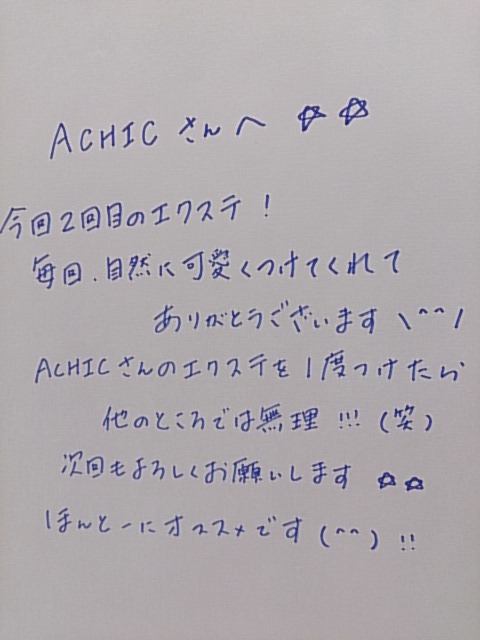 ACHIC さんへ ☆☆
今回2回目のエクステ!
毎回、自然に可愛くつけてくれて
ありがとうございます \^^/
ACHICさんのエクステを1度つけたら
他のところでは無理!!!(笑)
次回もよろしくお願いします ☆☆
ほんとーにオススメです(^^)!!